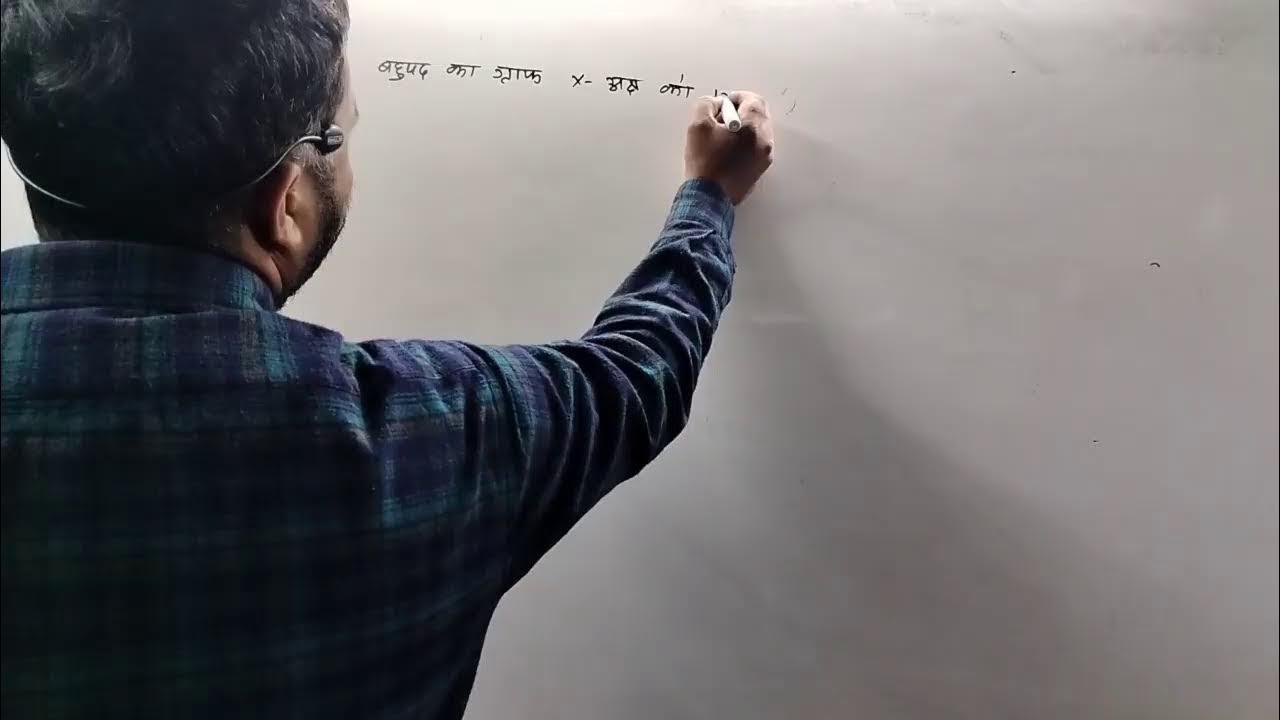 बहुपद का ग्राफ x- अक्ष को